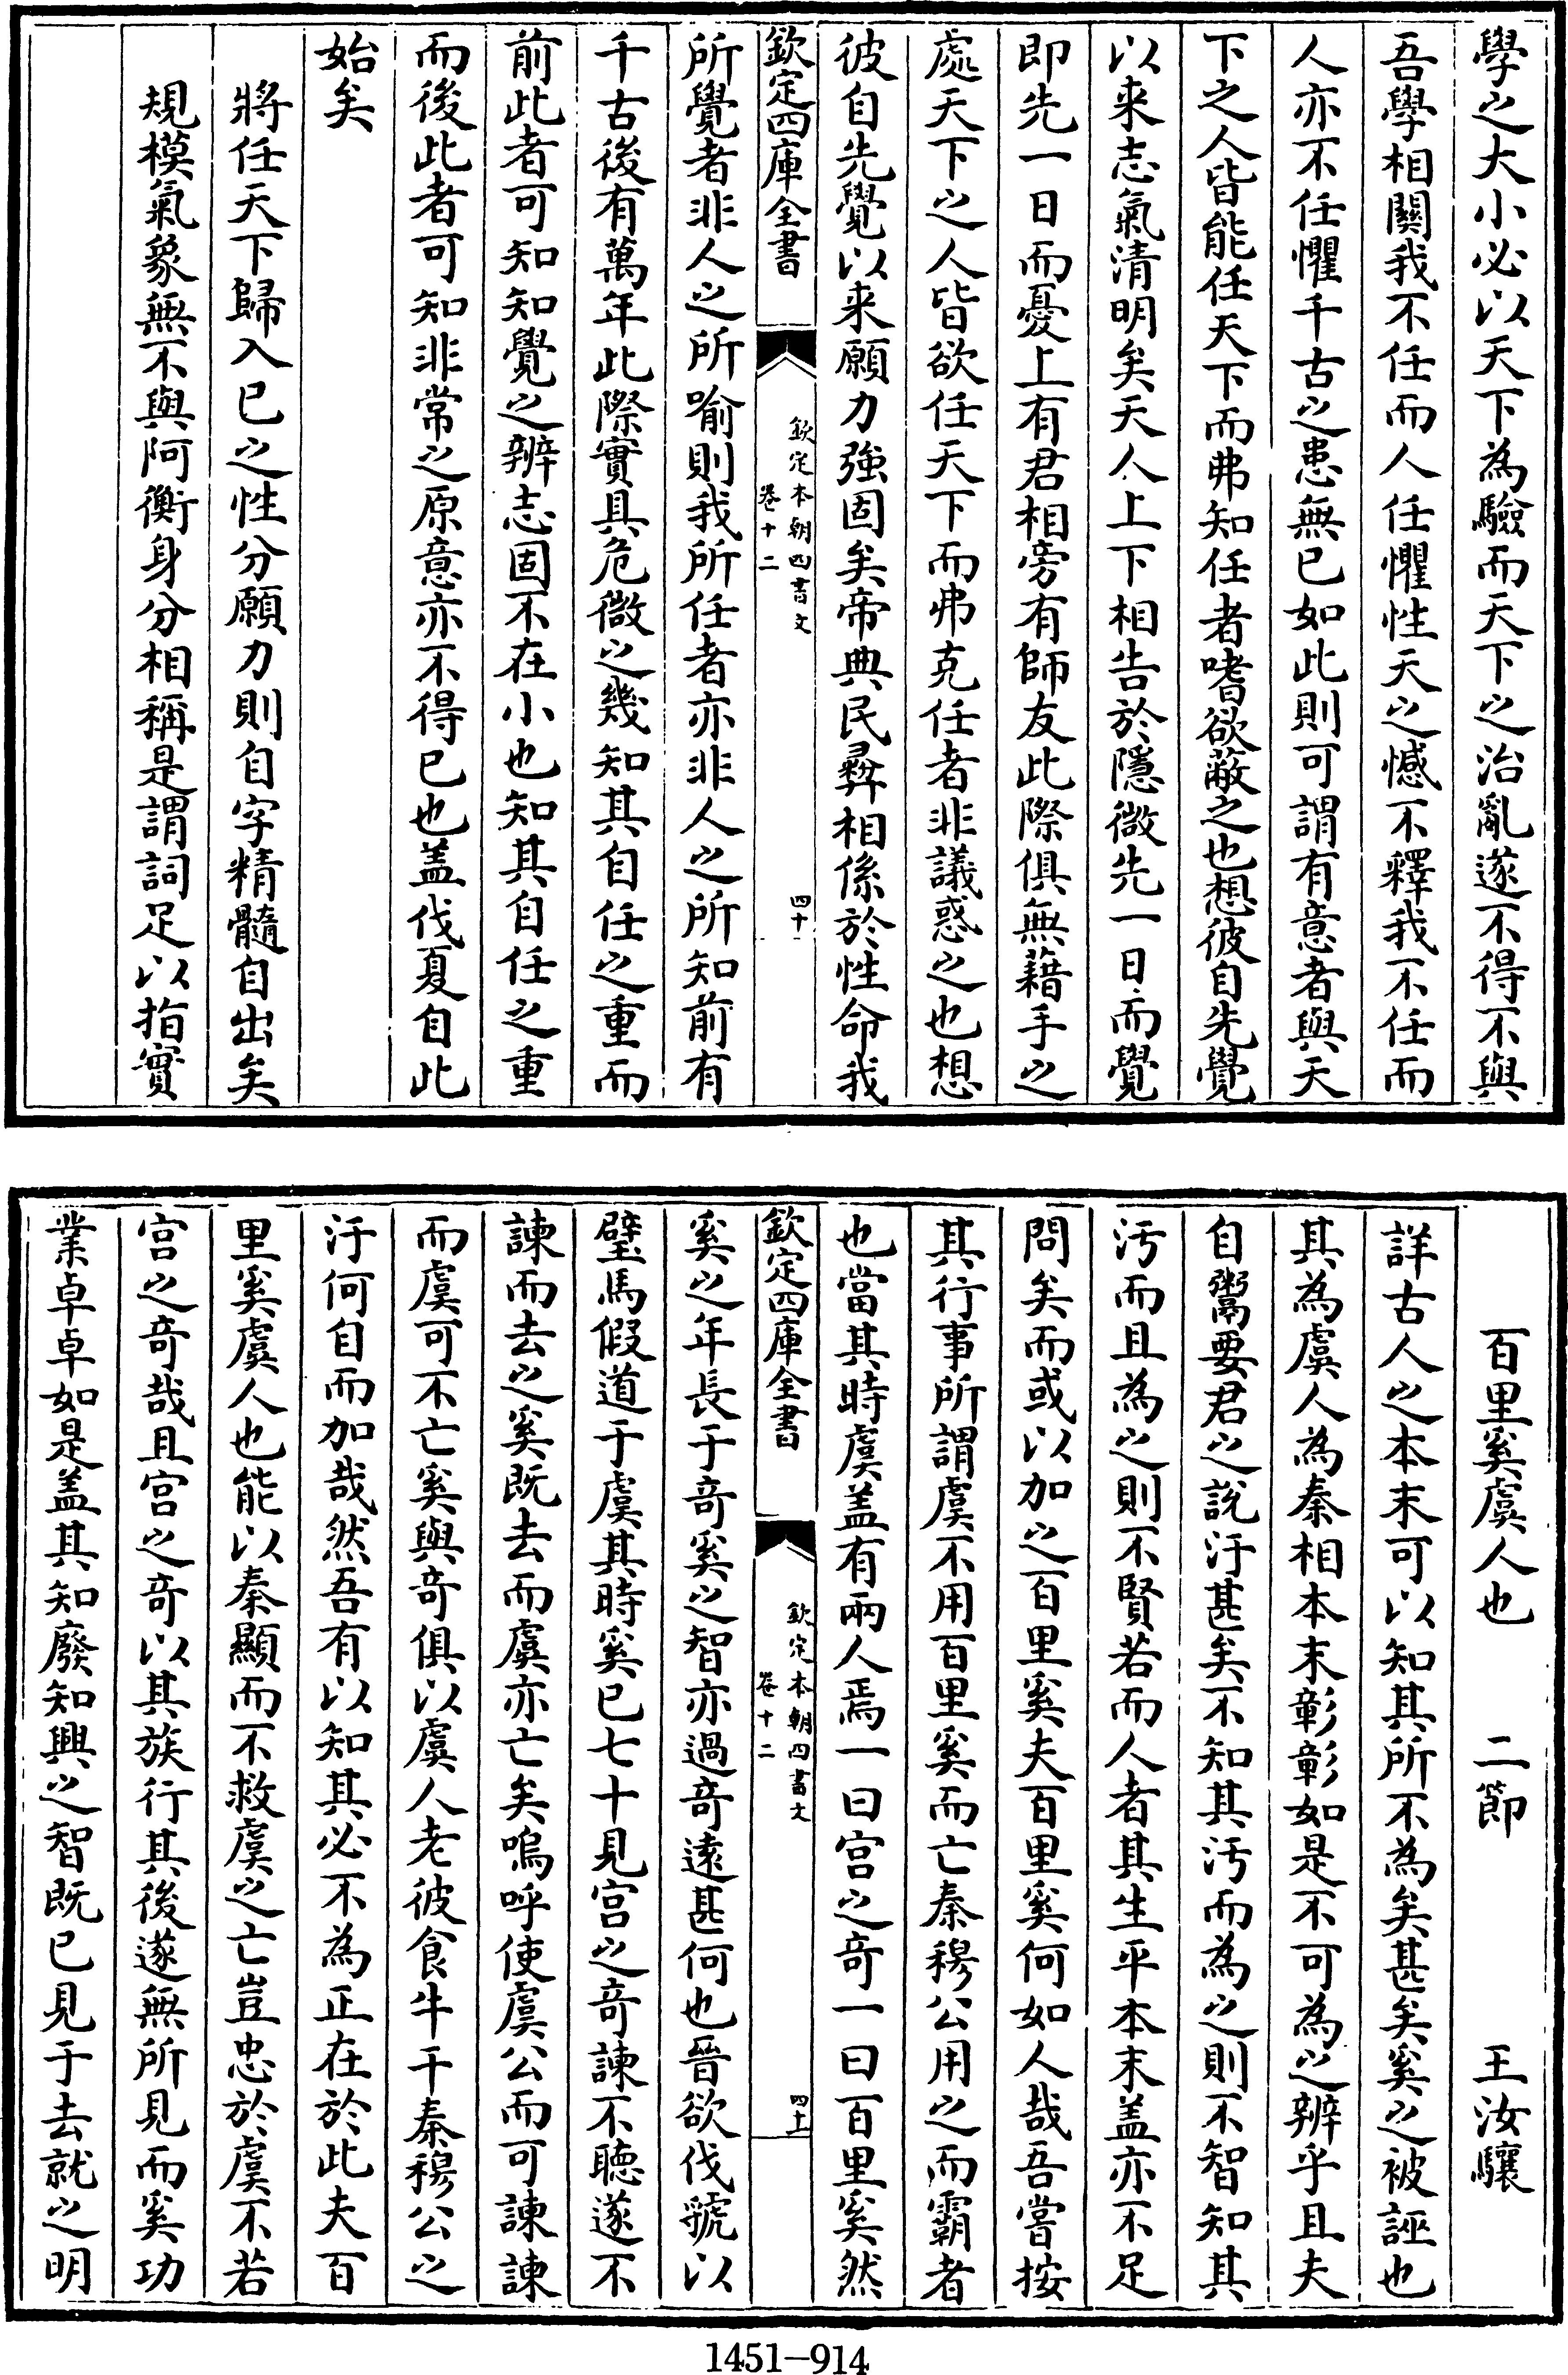 學之大小必以天下為驗而天下之治亂遂不得不與
吾學相關我不任而人任懼性天之憾不釋我不任而
人亦不任懼千古之患無已如此則可謂有意者與天
下之人皆能任天下而弗知任者嗜欲蔽之也想彼自先覺
以來志氣清明矣天人上下相告於隱微先一日而覺
即先一日而憂上有君相旁有師友此際俱無藉手之
處天下之人皆欲任天下而弗克任者非議惑之也想
彼自先覺以来願力強固矣帝典民彛相係於性命我
欽定四庫全書
欽定本朝四書文
卷十二
四十
所覺者非人之所喻則我所任者亦非人之所知前有
千古後有萬年此際實具危微之幾知其自任之重而
前此者可知知覺之辨志固不在小也知其自任之重
而後此者可知非常之原意亦不得已也盖伐夏自此
始矣
將任天下歸入已之性分願力則自字精髓自出矣
規模氣象無不與阿衡身分相稱是謂詞足以指實
百里奚虞人也 二節 王汝驤
詳古人之本末可以知其所不為矣甚矣奚之被誣也
其為虞人為秦相本末彰彰如是不可為之辨乎且夫
自鬻要君之說汙甚矣不知其汚而為之則不智知其
汚而且為之則不賢若而人者其生平本末盖亦不足
問矣而或以加之百里奚夫百里奚何如人哉吾嘗按
其行事所謂虞不用百里奚而亡秦穆公用之而霸者
也當其時虞盖有兩人焉一曰宫之奇一曰百里奚然
欽定四庫全書
欽定本朝四書文
卷十二
四十一
奚之年長于竒奚之智亦過竒遠甚何也晉欲伐虢以
璧馬假道于虞其時奚已七十見宫之竒諫不聴遂不
諫而去之奚既去而虞亦亡矣嗚呼使虞公而可諫諫
而虞可不亡奚與竒俱以虞人老彼食牛干秦穆公之
汙何自而加哉然吾有以知其必不為正在於此夫百
里奚虞人也能以秦顯而不救虞之亡豈忠於虞不若
宫之竒哉且宫之竒以其族行其後遂無所見而奚功
業卓卓如是盖其知廢知興之智既已見于去就之明
1451-914